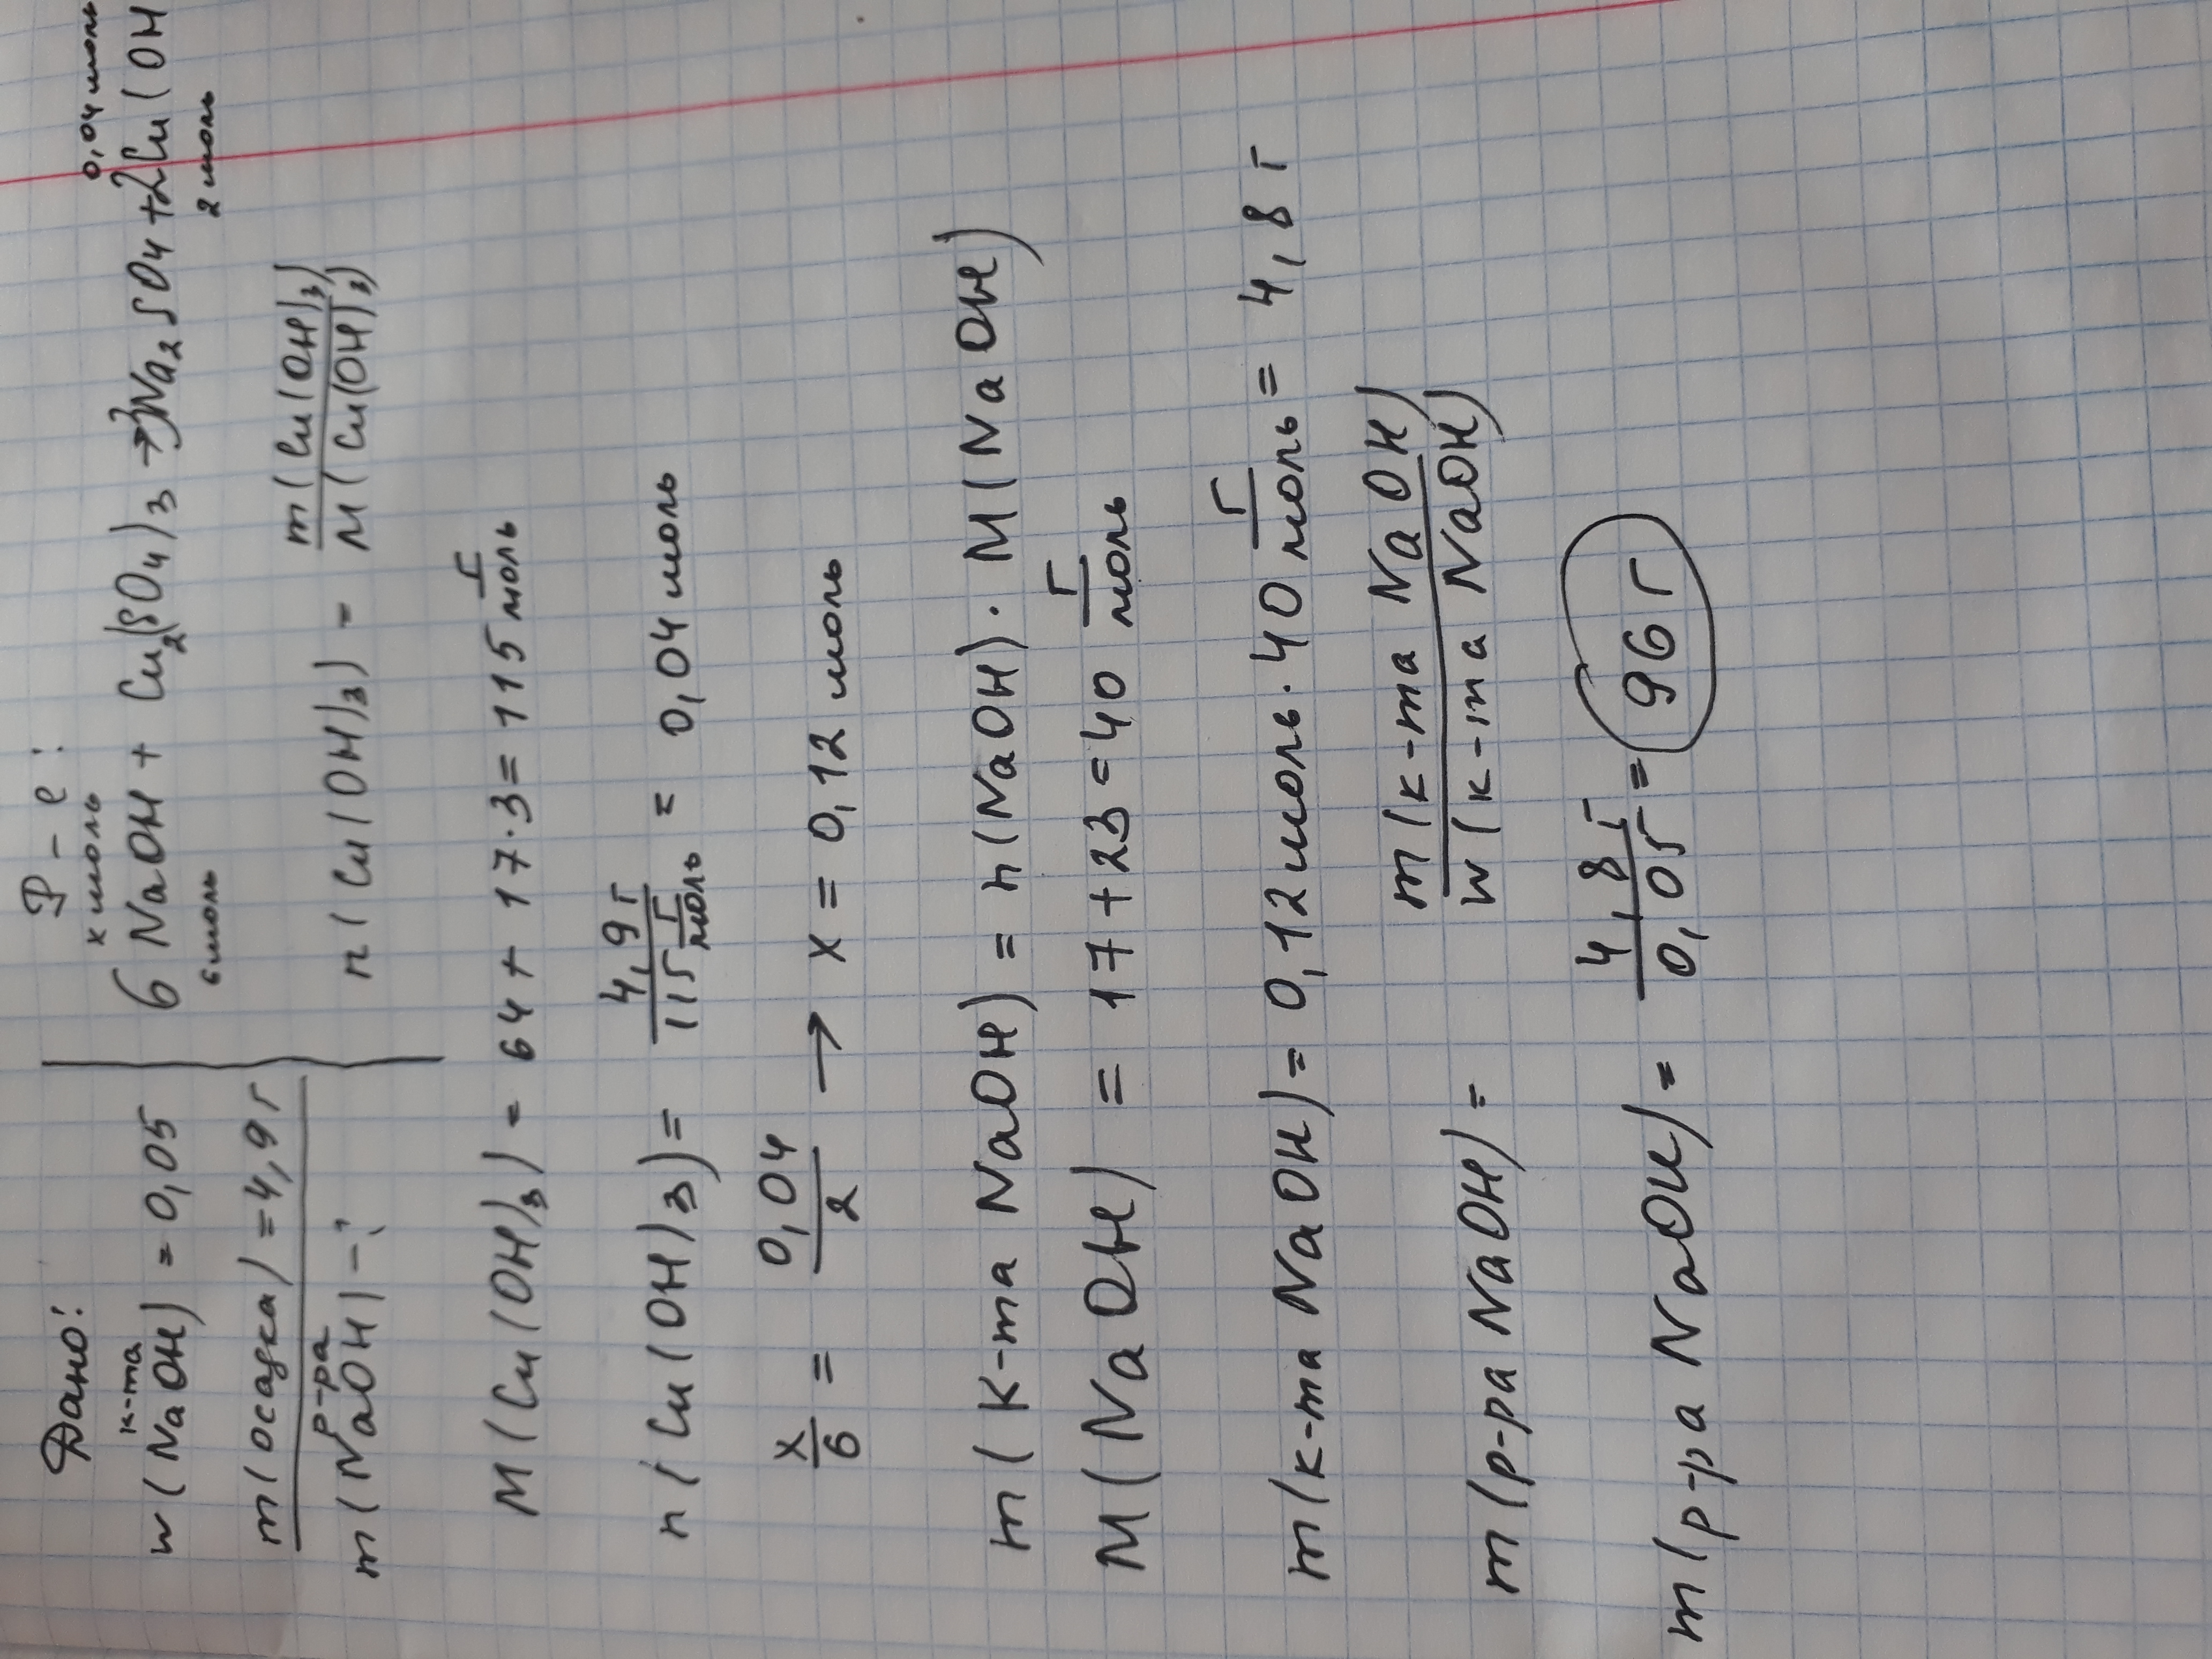 Дано:
w (NaOH) к-та = 0,05
m (осадка) = 4,9 г
m (NaOH) р-ра - ?
Р-е:
х моль 0,04 моль
6 NaOH + Cu2(SO4)3 → 3Na2SO4 + 2Cu(OH
6 моль 2 моль
n (Cu(OH)3) = m(Cu(OH)3) / M(Cu(OH)3)
M (Cu(OH)3) = 64 + 17·3 = 115 г/моль
n (Cu(OH)3) = 4,9 г / 115 г/моль = 0,04 моль
x/6 = 0,04/2 → x = 0,12 моль
m (к-та NaOH) = n (NaOH) · M (NaOH)
M (NaOH) = 17 + 23 = 40 г/моль
m (к-та NaOH) = 0,12 моль · 40 г/моль = 4,8 г
m (р-ра NaOH) = m (к-та NaOH) / w (к-та NaOH)
m (р-ра NaOH) = 4,8 г / 0,05 = 96 г